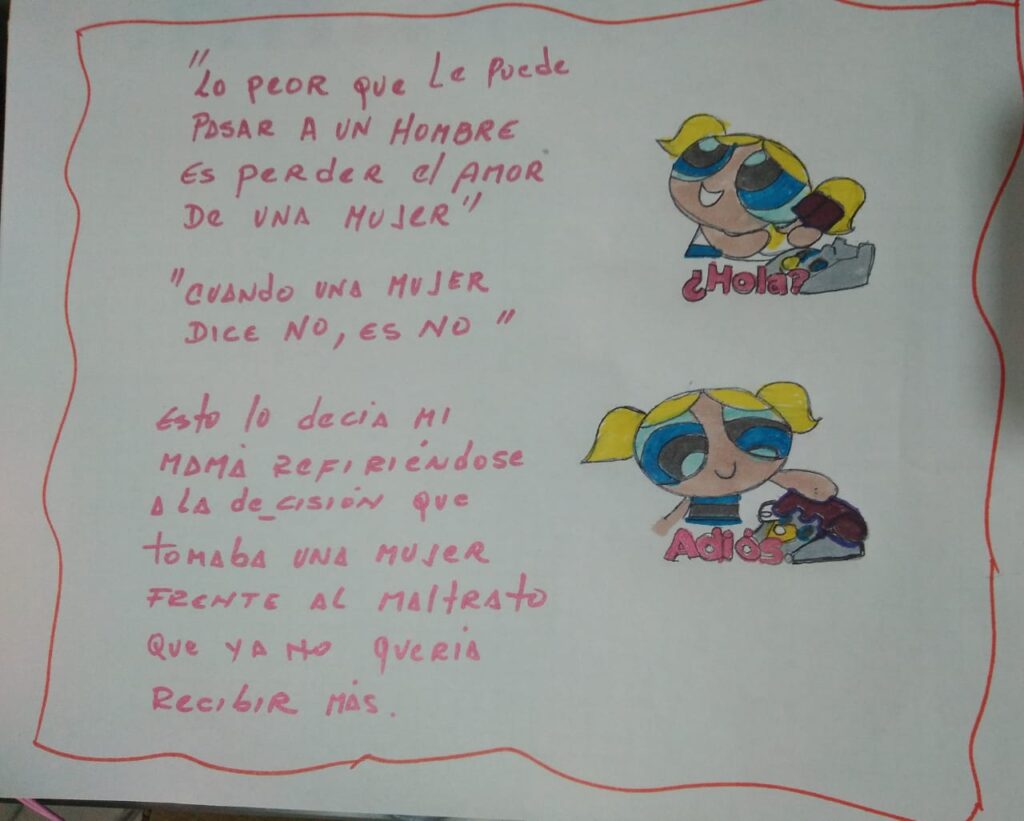 "Lo peor que le puede
pasar a un hombre
es perder el amor
de una mujer"
"Cuando una mujer
dice no, es no"
Esto lo decia mi
mamá refiriéndose
a la de_cisión que
tomaba una mujer
frente al maltrato
que ya no queria
recibir más.
¿Hola?
Adiós.